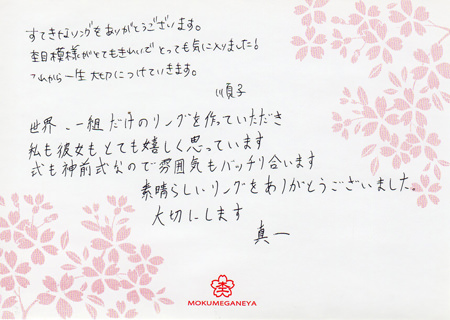 すてきなリングをありがとうございます。
杢目模様がとてもきれいで とっても気に入りました!
これから一生大切につけていきます。
順子
世界、一組だけのリングを作っていただき
私も彼女もとても嬉しく思っています
式も神前式なので雰囲気もバッチリ合います
素晴らしいリングをありがとうございました。
大切にします
真一
杢
MOKUMEGANEYA